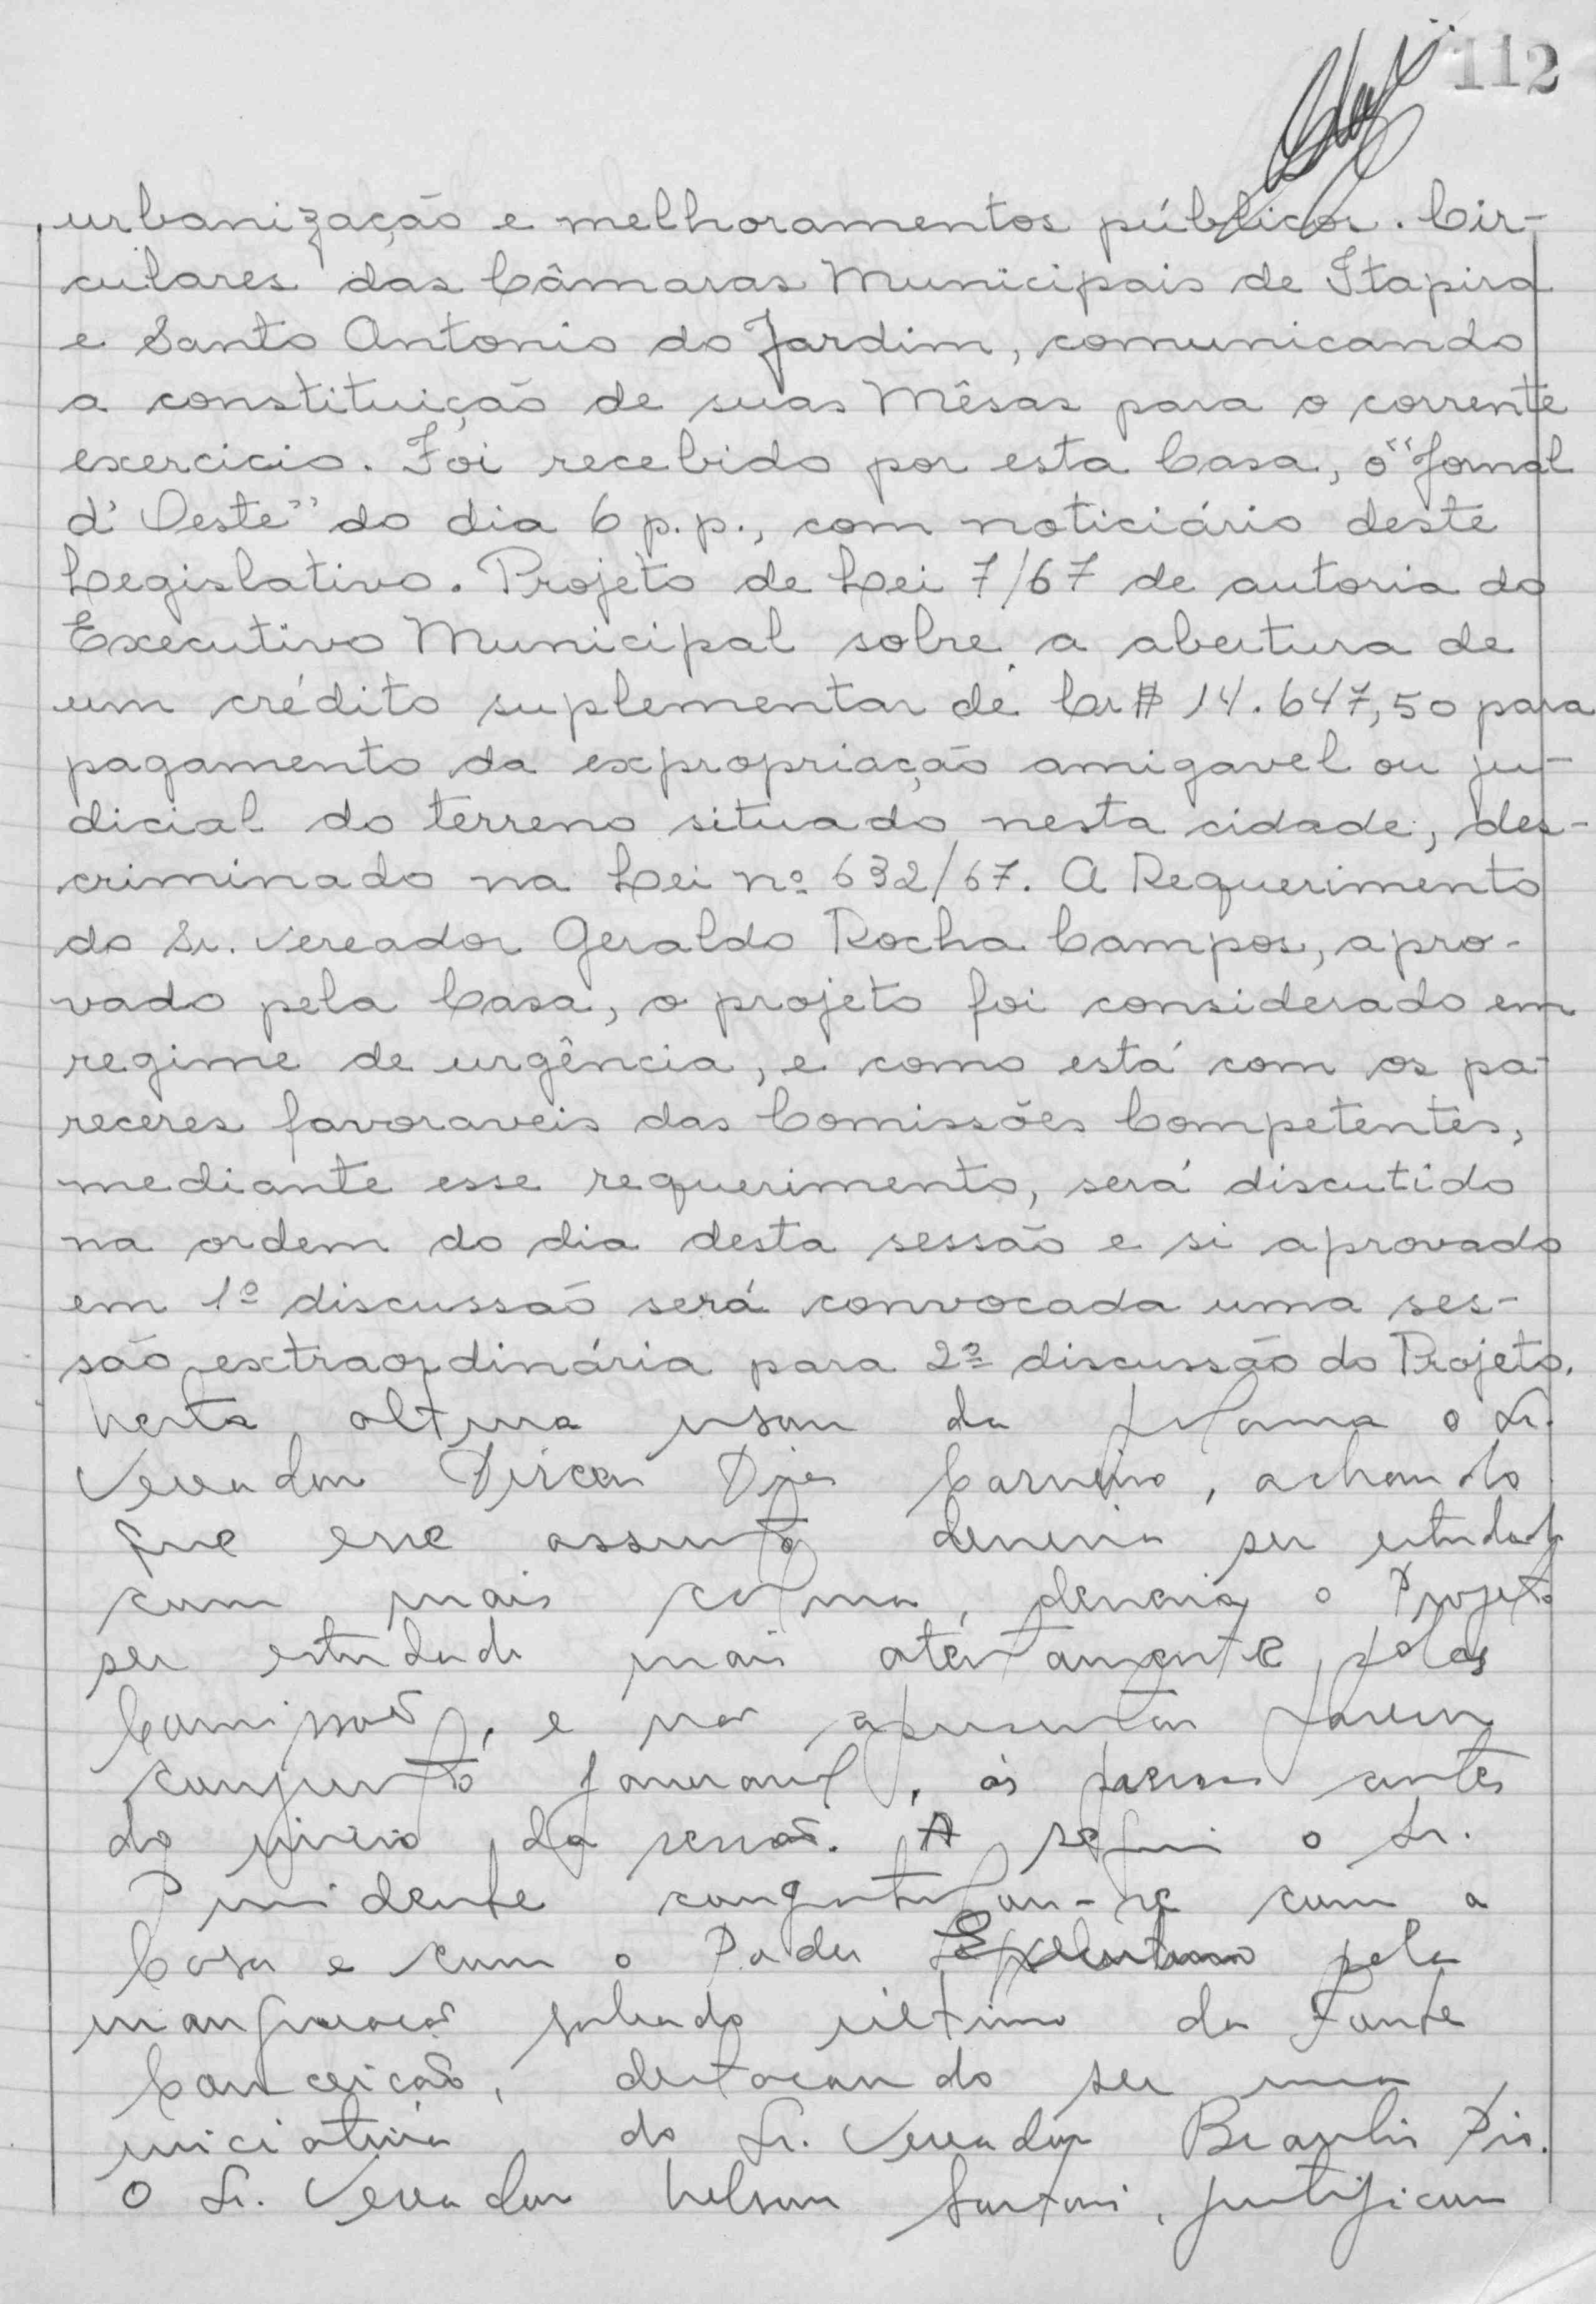 112
urbanização e melhoramentos públicos. Cir-
culares das Câmaras Municipais de Itapira
e Santo Antonio do Jardim, comunicando
a constituição de suas Mêsas para o corrente
exercicio. Foi recebido por esta Casa, o "Jornal
d' Oeste" do dia 6 p.p., com noticiário deste
Legislativo. Projeto de Lei 7/67 de autoria do
Executivo Municipal sobre a abertura de
um crédito suplementar de Cr$ 14.647,50 para
pagamento da expropriação amigavel ou ju-
dicial do terreno situado nesta cidade, des-
criminado na Lei nº 632/67. A Requerimento
do Sr. Vereador Geraldo Rocha Campos, apro-
vado pela Casa, o projeto foi considerado em
regime de urgência, e como está com os pa-
receres favoraveis das Comissões Competentes,
mediante esse requerimento, será discutido
na ordem do dia desta sessão e si aprovado
em 1º discussão será convocada uma ses-
são extraordinária para 2ª discussão do Projeto.
Nesta altura usou da palavra o Sr.
Vereador Dirceu Dias Carneiro, achando
que esse assunto deveria ser estudado
com mais calma, deveria o Projeto
ser estudado mais atentamente pelas
Comissões, e não apresentar parecer
conjunto favoravel, às pressas antes
do inicio da sessão. A seguir o Sr.
Presidente congratulou-se com a
Casa e com o Poder Executivo pela
inauguração sabado ultimo da Fonte
Conceição, destacando ser uma
iniciativa do Sr. Vereador Braulio Pio.
O Sr. Vereador Nelson Sartori, justificou